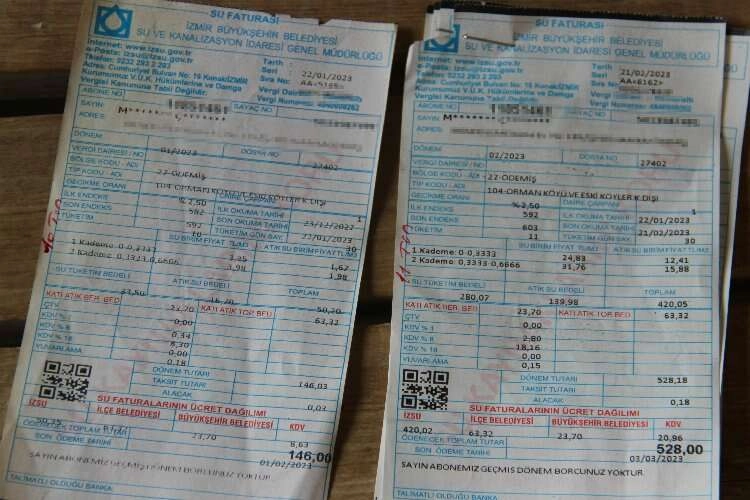 SU FATURASI
İZMİR BÜYÜKŞEHİR BELEDİYESİ
SU VE KANALİZASYON İDARESİ GENEL MÜDÜRLÜĞÜ
Internet: www.izsu.gov.tr
e-Posta: izsu@izsu.gov.tr
Telefon: 0232 293
Adres: Cumhuriyet Bulvarı No: 16 Konak/İZMİR
Kurumumuz V.U.K. Hükümlerine ve Damga
Vergisi Kanununa Tabii Değildir.
Tarih : 22/01/2023
Seri
Sıra No: AA<5165>
Vergi Dairesi
Vergi Numarası
ABONE NO
SAYIN M*******
SAYAÇ NO
ADRES:
DÖNEM 01/2023
VERGİ DAİRESİ / NO
DOSYA NO 27402
BÖLGE KODU - ADI 22-ÖDEMİŞ
TİP KODU / ADI 104-ORMAN KÖYÜ VE ESKİ KÖYLER K.DIŞI
GECİKME ORANI %2,50
DAİRE ÇARPANI 1
İLK ENDEKS 582
İLK OKUMA TARİHİ 23/12/2022
SON ENDEKS 592
SON OKUMA TARİHİ 22/01/2023
TÜKETİM 10
TÜKETİM GÜN SAY. 30
SU BİRİM FİYAT TL/M3
ATIK SU BİRİM FİYATI TL/M3
1.Kademe 0-0,3333 3,25 1,62
2.Kademe 0,3333-0,6666 3,98 1,98
SU TÜKETİM BEDELİ
ATIK SU BEDELİ
TOPLAM
33,50 16,70 50,20
KATI ATIK BER. BED 23,70
KATI ATIK TOP. BED 63,32
ÇTV 0,00
KDV % 1 0,34
KDV % 8 8,30
KDV % 18 0,00
YUVARLAMA 0,18
DÖNEM TUTARI 146,03
TAKSİT TUTARI
ALACAK 0,03
SU FATURALARININ ÜCRET DAĞILIMI
İZSU
İLÇE BELEDİYESİ
BÜYÜKŞEHİR BELEDİYESİ
KDV
23,70 8,63
ÖDENECEK TOPLAM TUTAR 146,00
SON ÖDEME TARİHİ 01/02/2023
SAYIN ABONEMİZ GEÇMİŞ DÖNEM BORCUNUZ YOKTUR
TALİMATLI OLDUĞU BANKA:
SU FATURASI
İZMİR BÜYÜKŞEHİR BELEDİYESİ
SU VE KANALİZASYON İDARESİ GENEL MÜDÜRLÜĞÜ
Internet: www.izsu.gov.tr
e-Posta: izsu@izsu.gov.tr
Telefon: 0232 293
Adres: Cumhuriyet Bulvarı No: 16 Konak/İZMİR
Kurumumuz V.U.K. Hükümlerine ve Damga
Vergisi Kanununa Tabii Değildir.
Tarih : 21/02/2023
Seri
Sıra No: AA<6162>
Vergi Dairesi
Vergi Numarası
ABONE NO
SAYIN M*******
SAYAÇ NO
ADRES:
DÖNEM 02/2023
VERGİ DAİRESİ / NO
DOSYA NO 27402
BÖLGE KODU - ADI 22-ÖDEMİŞ
TİP KODU / ADI 104-ORMAN KÖYÜ VE ESKİ KÖYLER K.DIŞI
GECİKME ORANI %2,50
DAİRE ÇARPANI 1
İLK ENDEKS 592
İLK OKUMA TARİHİ 22/01/2023
SON ENDEKS 603
SON OKUMA TARİHİ 21/02/2023
TÜKETİM 11
TÜKETİM GÜN SAY. 30
SU BİRİM FİYAT TL/M3
ATIK SU BİRİM FİYATI TL/M3
1.Kademe 0-0,3333 24,83 12,41
2.Kademe 0,3333-0,6666 31,76 15,88
SU TÜKETİM BEDELİ
ATIK SU BEDELİ
TOPLAM
280,07 139,98 420,05
KATI ATIK BER. BED 23,70
KATI ATIK TOP. BED 63,32
ÇTV 0,00
KDV % 1
KDV % 8 2,80
KDV % 18 18,16
YUVARLAMA 0,00
0,15
DÖNEM TUTARI 528,18
TAKSİT TUTARI
ALACAK 0,18
SU FATURALARININ ÜCRET DAĞILIMI
İZSU
İLÇE BELEDİYESİ
BÜYÜKŞEHİR BELEDİYESİ
KDV
420,02 63,32 23,70 20,96
ÖDENECEK TOPLAM TUTAR 528,00
SON ÖDEME TARİHİ 03/03/2023
SAYIN ABONEMİZ GEÇMİŞ DÖNEM BORCUNUZ YOKTUR
TALİMATLI OLDUĞU BANKA: